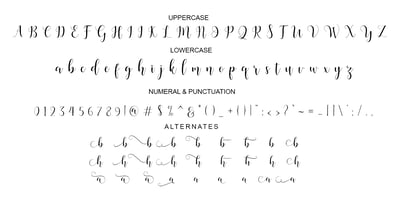 UPPERCASE
A B C D E F G H I J K L M N O P Q R S T U V W X Y Z
LOWERCASE
a b c d e f g h i j k l m n o p q r s t u v w x y z
NUMERAL & PUNCTUATION
0 1 2 3 4 5 6 7 8 9 ! @ # $ % ^ & * ( ) _ + { } | " : < > ? ~ = _ [ ] \ ' ; / . .
ALTERNATES
b b b b b b b b
h h h h h h h h
a a a a a a a a